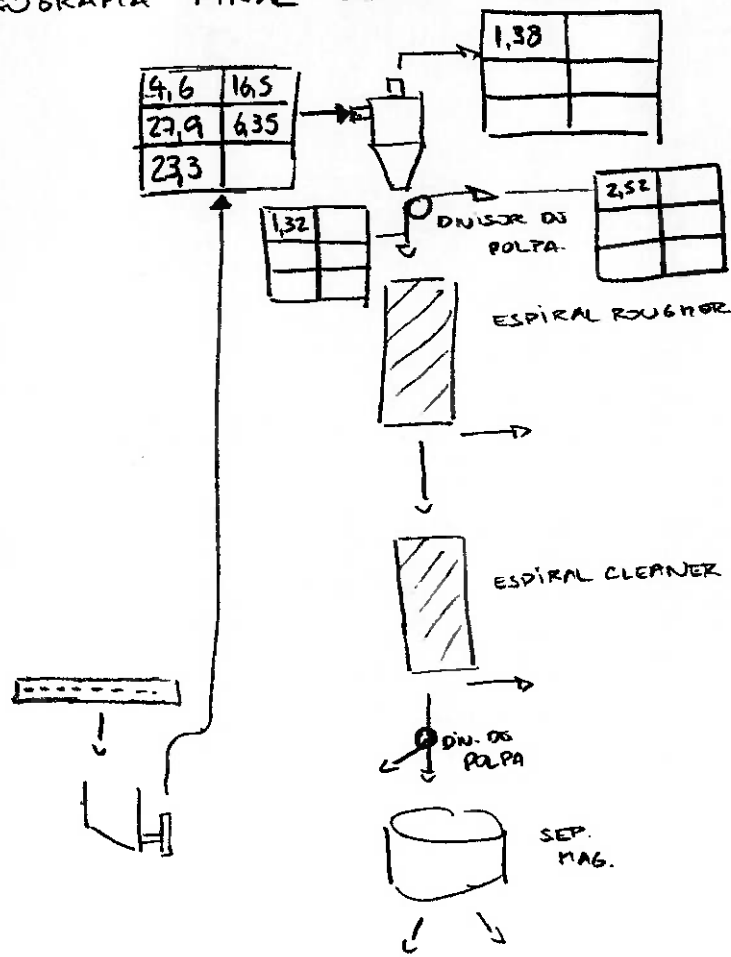 FINAL
1,38
4,6 16,5
27,9 6,35
23,3
1,32
2,52
DIVISOR DE
POLPA.
ESPIRAL ROUGHER
ESPIRAL CLEANER
DIV. DE
POLPA
SEP.
MAG.